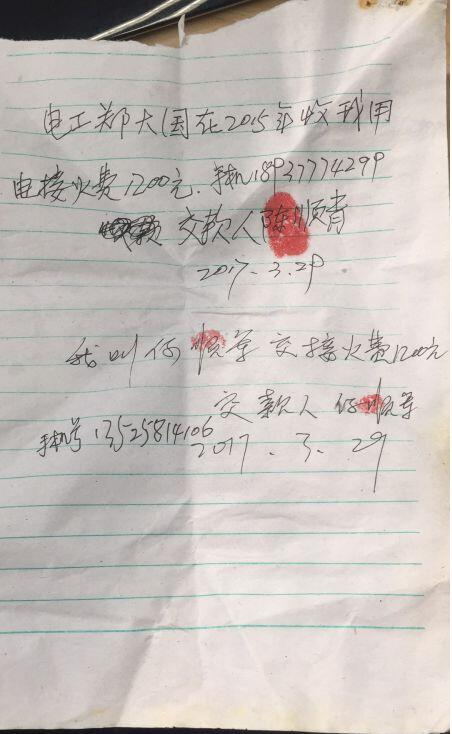 电工郑大国在2015年收我用
电接火费1200元.手机18937774299
交款人陈顺青
2017.3.29
我叫何顺等交接火费1200元
交款人何顺等
手机号13525814106
2017.3.29